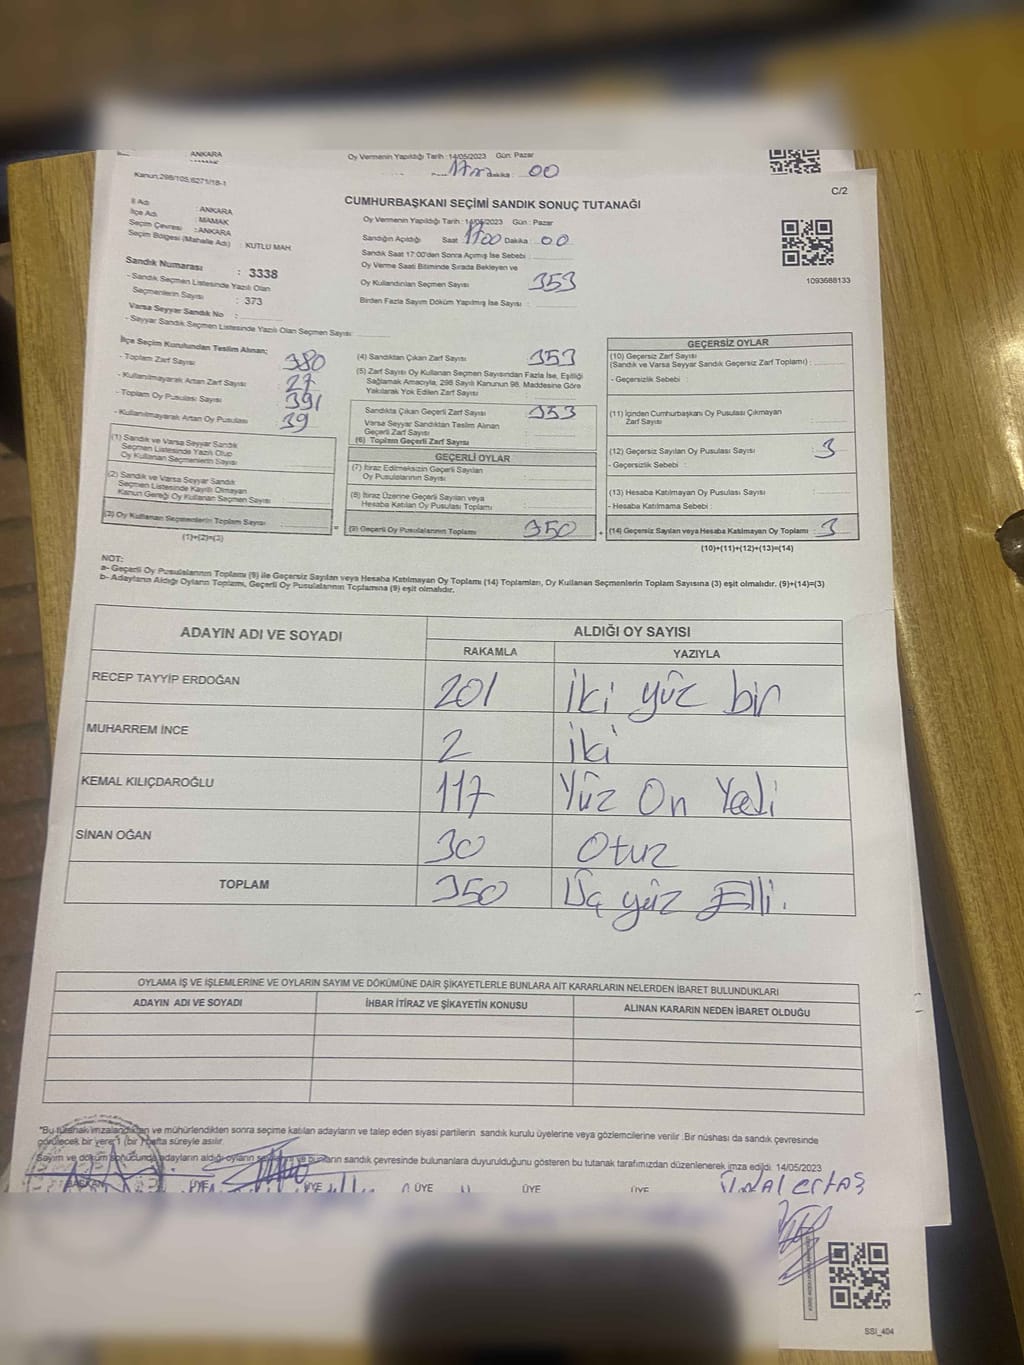 ANKARA
Oy Vermenin Yapıldığı Tarih :14/05/2023 Gün: Pazar
17 00 Dakika : 00
Kanun,298/105,6271/18-1
C/2
CUMHURBAŞKANI SEÇİMİ SANDIK SONUÇ TUTANAĞI
İl Adı : ANKARA
İlçe Adı : MAMAK
Seçim Çevresi : ANKARA
Seçim Bölgesi (Mahalle Adı) : KUTLU MAH
Sandık Numarası : 3338
- Sandık Seçmen Listesinde Yazılı Olan
Seçmenlerin Sayısı : 373
Varsa Seyyar Sandık No :
- Seyyar Sandık Seçmen Listesinde Yazılı Olan Seçmen Sayısı:
Oy Vermenin Yapıldığı Tarih : 14/05/2023 Gün : Pazar
Sandığın Açıldığı Saat 17:00 Dakika : 00
Sandık Saat 17:00'den Sonra Açımış İse Sebebi :
Oy Verme Saati Bitiminde Sırada Bekleyen ve
Oy Kullandırılan Seçmen Sayısı 353
Birden Fazla Sayım Döküm Yapılmış İse Sayısı :
1093688133
İlçe Seçim Kurulundan Teslim Alınan;
- Toplam Zarf Sayısı : 380
- Kullanılmayarak Artan Zarf Sayısı : 27
- Toplam Oy Pusulası Sayısı : 391
- Kullanılmayarak Artan Oy Pusulası : 39
(1) Sandık ve Varsa Seyyar Sandık
Seçmen Listesinde Yazılı Olup
Oy Kullanan Seçmenlerin Sayısı
(2) Sandık ve Varsa Seyyar Sandık
Seçmen Listesinde Kayıtlı Olmayan
Kanun Gereği Oy Kullanan Seçmen Sayısı :
(3) Oy Kullanan Seçmenlerin Toplam Sayısı :
(1)+(2)=(3)
(4) Sandıktan Çıkan Zarf Sayısı : 353
(5) Zarf Sayısı Oy Kullanan Seçmen Sayısından Fazla İse, Eşitliği
Sağlamak Amacıyla, 298 Sayılı Kanunun 98. Maddesine Göre
Yakılarak Yok Edilen Zarf Sayısı :
Sandıkta Çıkan Geçerli Zarf Sayısı : 353
Varsa Seyyar Sandıktan Teslim Alınan
Geçerli Zarf Sayısı :
(6) Toplam Geçerli Zarf Sayısı
GEÇERLİ OYLAR
(7) İtiraz Edilmeksizin Geçerli Sayılan
Oy Pusulalarının Sayısı :
(8) İtiraz Üzerine Geçerli Sayılan veya
Hesaba Katılan Oy Pusulası Toplamı :
= (9) Geçerli Oy Pusulalarının Toplamı : 350 +
GEÇERSİZ OYLAR
(10) Geçersiz Zarf Sayısı
(Sandık ve Varsa Seyyar Sandık Geçersiz Zarf Toplamı) :
- Geçersizlik Sebebi :
(11) İçinden Cumhurbaşkanı Oy Pusulası Çıkmayan
Zarf Sayısı :
(12) Geçersiz Sayılan Oy Pusulası Sayısı : 3
- Geçersizlik Sebebi :
(13) Hesaba Katılmayan Oy Pusulası Sayısı :
- Hesaba Katılmama Sebebi :
(14) Geçersiz Sayılan veya Hesaba Katılmayan Oy Toplamı : 3
(10)+(11)+(12)+(13)=(14)
NOT:
a- Geçerli Oy Pusulalarının Toplamı (9) ile Geçersiz Sayılan veya Hesaba Katılmayan Oy Toplamı (14) Toplamları, Oy Kullanan Seçmenlerin Toplam Sayısına (3) eşit olmalıdır. (9)+(14)=(3)
b- Adayların Aldığı Oyların Toplamı, Geçerli Oy Pusulalarının Toplamına (9) eşit olmalıdır.
ADAYIN ADI VE SOYADI ALDIĞI OY SAYISI
RAKAMLA YAZIYLA
RECEP TAYYİP ERDOĞAN 201 İki yüz bir
MUHARREM İNCE 2 iki
KEMAL KILIÇDAROĞLU 117 Yüz On Yedi
SİNAN OĞAN 30 Otuz
TOPLAM 350 Üç yüz Elli.
OYLAMA İŞ VE İŞLEMLERİNE VE OYLARIN SAYIM VE DÖKÜMÜNE DAİR ŞİKAYETLERLE BUNLARA AİT KARARLARIN NELERDEN İBARET BULUNDUKLARI
ADAYIN ADI VE SOYADI İHBAR İTİRAZ VE ŞİKAYETİN KONUSU ALINAN KARARIN NEDEN İBARET OLDUĞU
"Bu tutanak imzalandıktan ve mühürlendikten sonra seçime katılan adayların ve talep eden siyasi partilerin sandık kurulu üyelerine veya gözlemcilerine verilir .Bir nüshası da sandık çevresinde
görülecek bir yere 1 (bir ) hafta süreyle asılır.
Sayım ve döküm sonucunda adayların aldığı oyların ve bunların sandık çevresinde bulunanlara duyurulduğunu gösteren bu tutanak tarafımızdan düzenlenerek imza edildi. 14/05/2023
BAŞKAN ÜYE ÜYE ÜYE ÜYE ÜYE
SSI_404